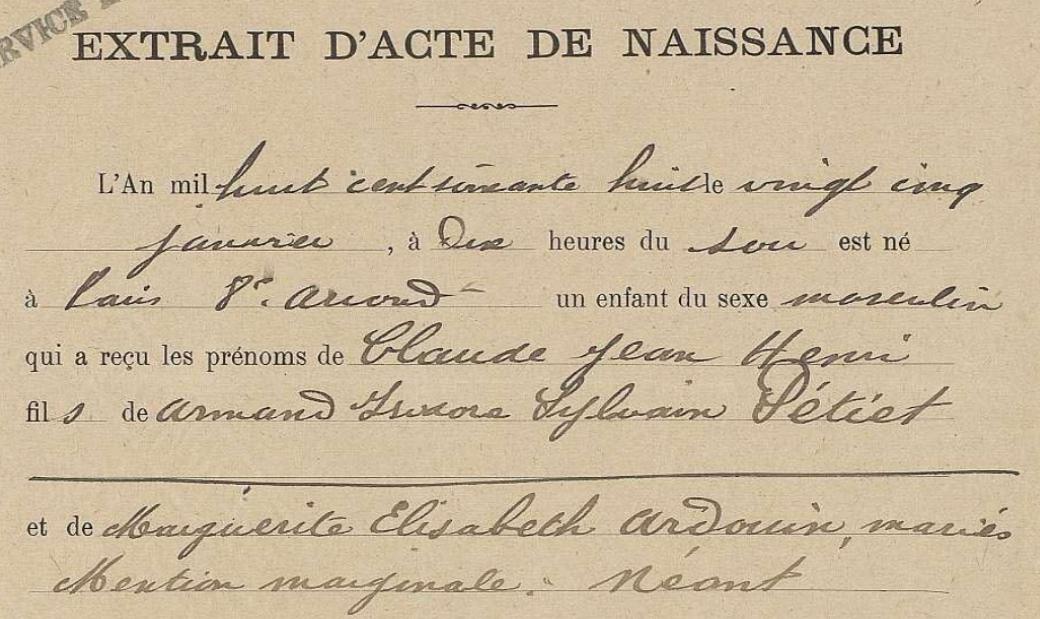 RVICE
EXTRAIT D'ACTE DE NAISSANCE
L'An mil huit cent soixante huit le vingt cinq
janvier, à Dix heures du soir est né
à Paris 8e. arrond un enfant du sexe masculin
qui a reçu les prénoms de Claude Jean Henri
fils de Armand Isidore Sylvain Pétiet
et de Marguerite Elisabeth Ardouin, mariés
Mention marginale. Néant